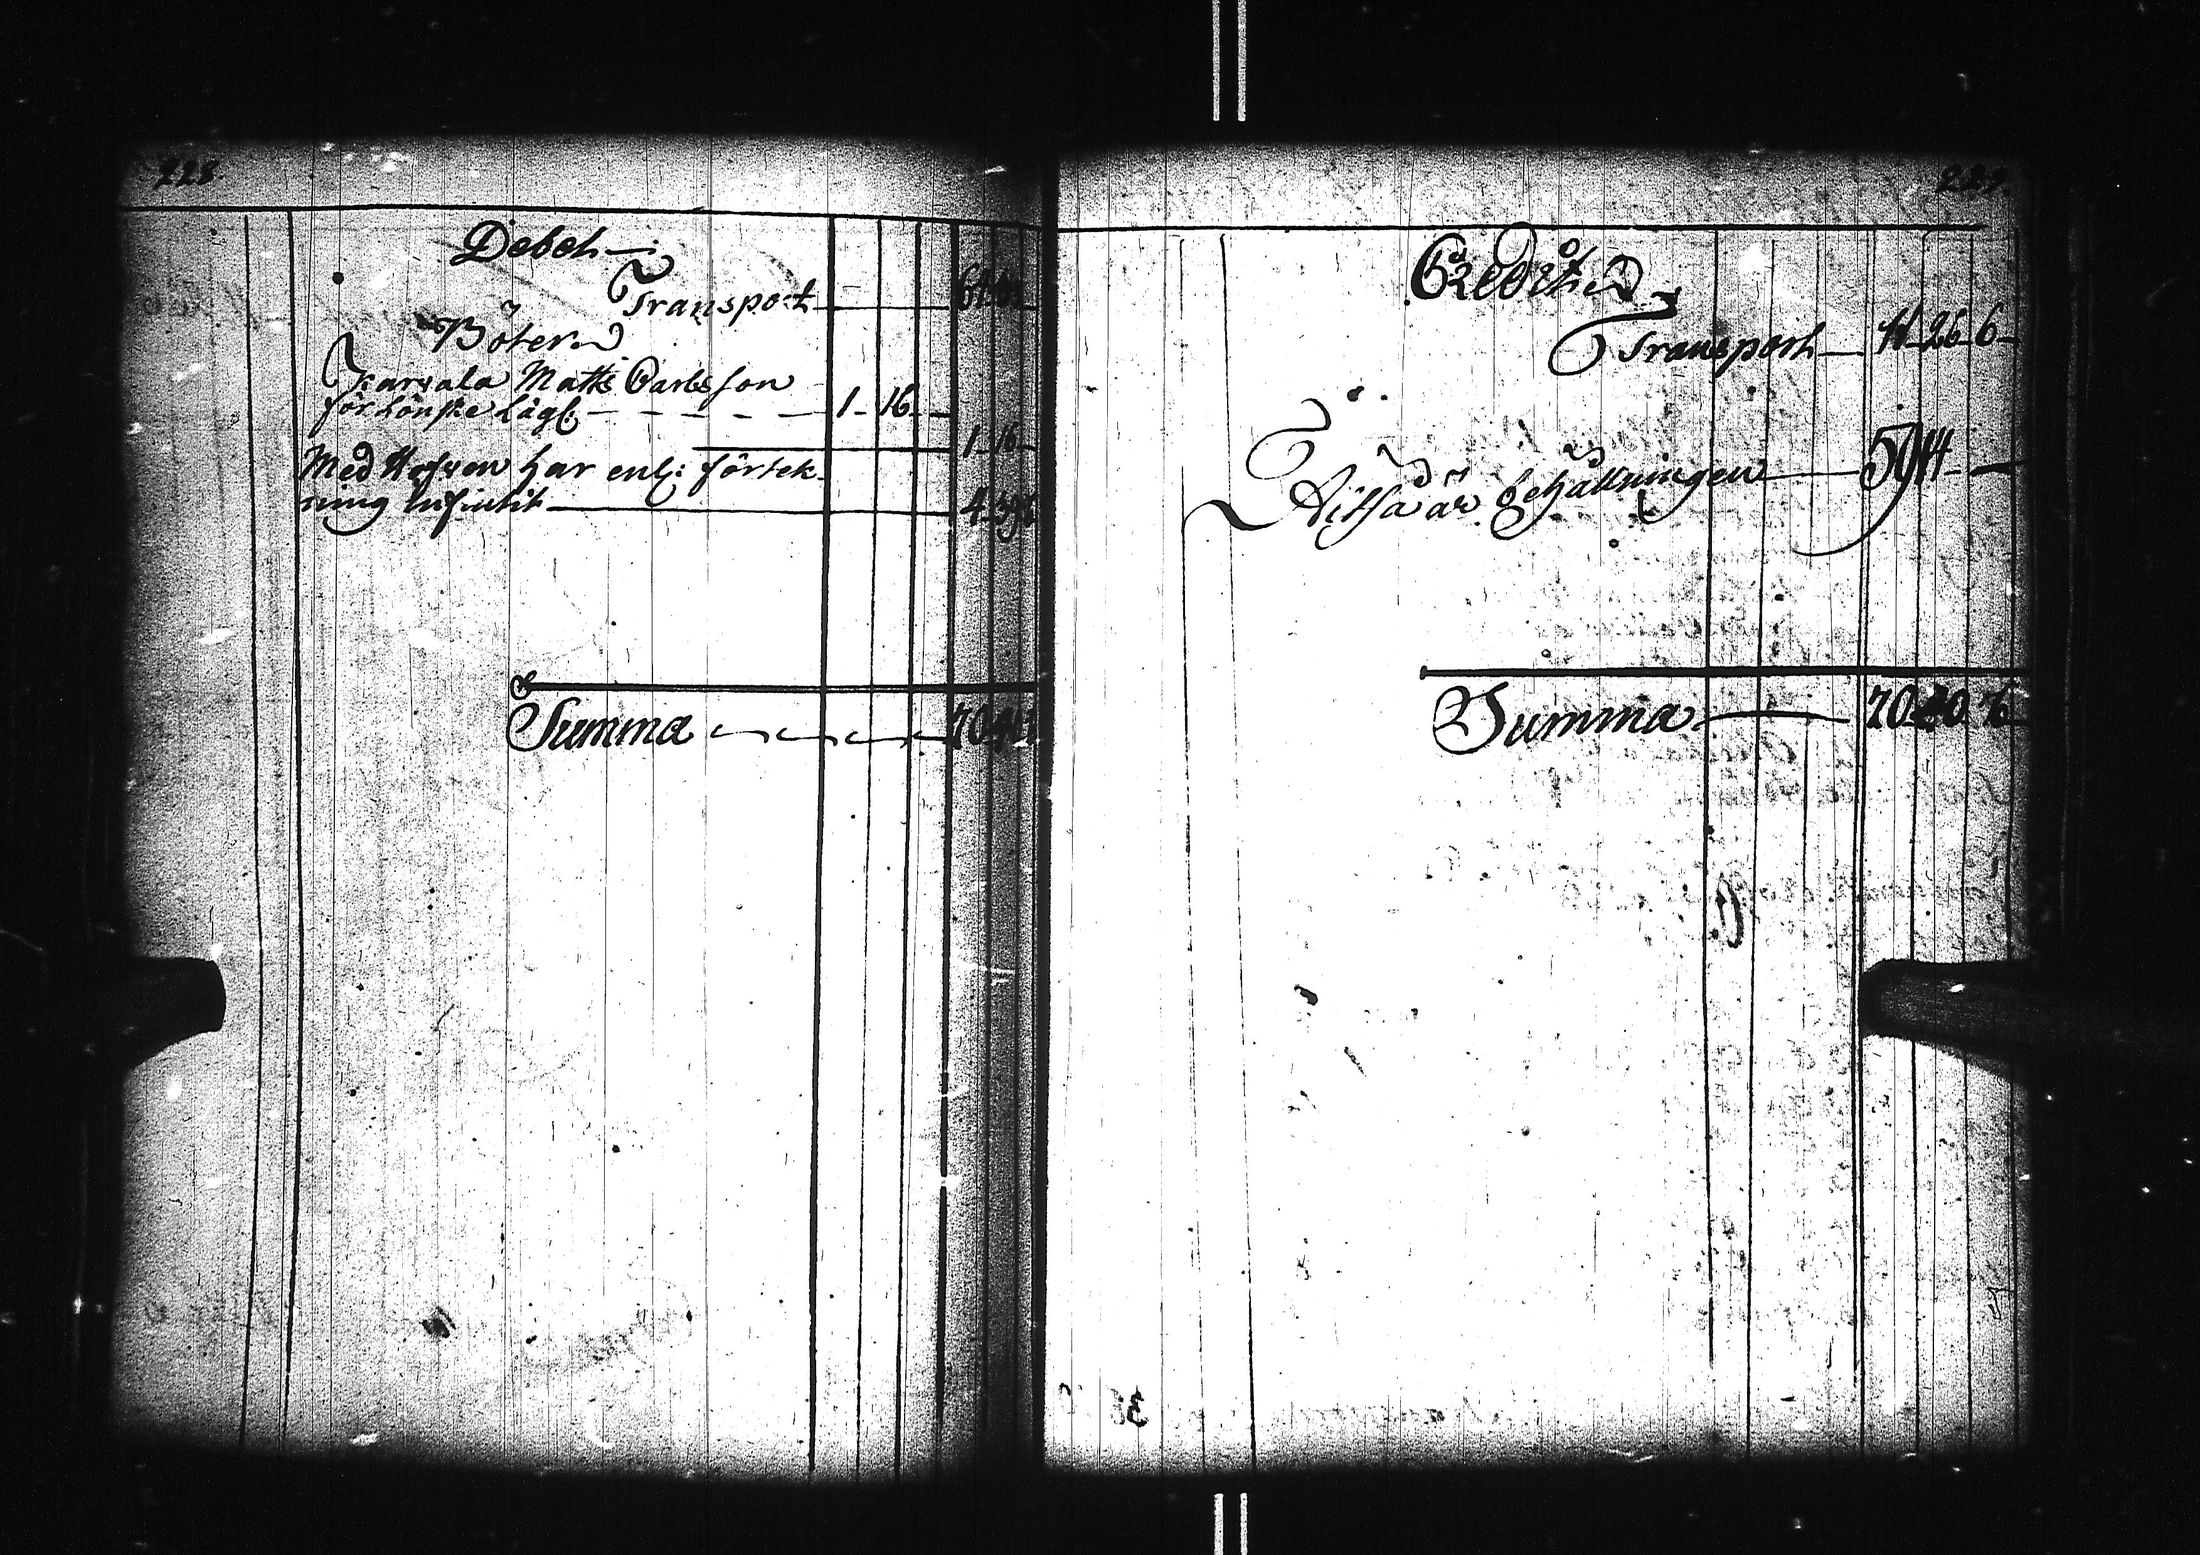 228.
Debet
Transport
Böter
Karvala Matts Carlsson
för Lönske Läg: 1 16
1 16
Med Håfven har enl: förtek-
ning influtit 4
Summa
229.
Credit
Transport 11 26 6
Altså är behållningen 59 14
Summa 70 40 6